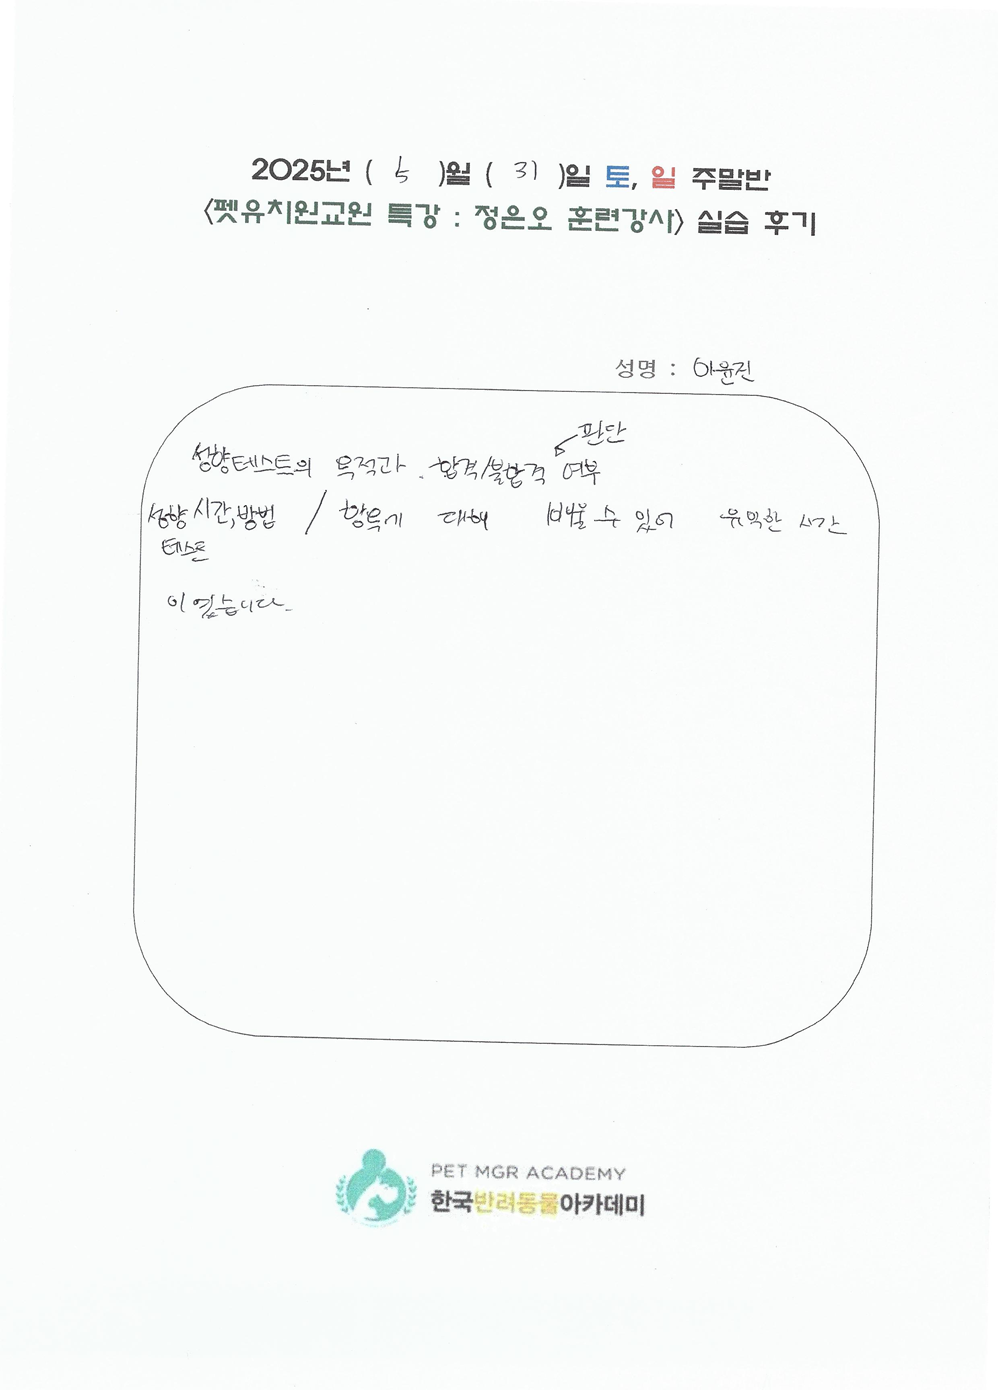 2025년 ( 5 )월 ( 31 )일 토, 일 주말반
<펫유치원교원 특강 : 정은오 훈련강사> 실습 후기
성명 : 이윤진
판단
성향테스트의 목적과, 합격/불합격 여부
성향 시간,방법 / 항목에 대해 배울 수 있어 유익한 시간
테스트
이었습니다.
PET MGR ACADEMY
한국반려동물아카데미